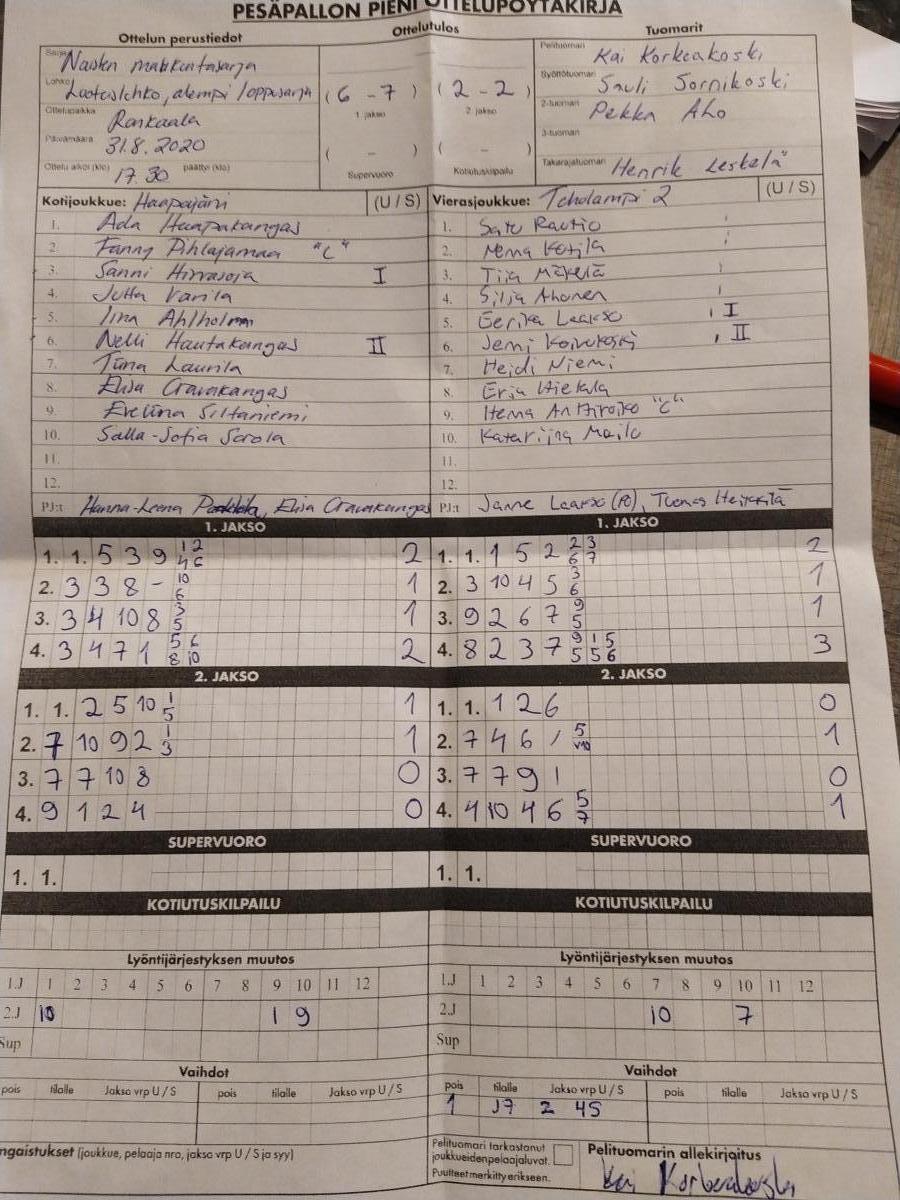 PESÄPALLON PIENI OTTELUPÖYTÄKIRJA
Ottelun perustiedot
Ottelutulos
Tuomarit
Sarja
Naisten maakuntasarja
Lohko
alempi loppusarja
Ottelupaikka
Rankaala
Päivämäärä
31.8.2020
Ottelu alkoi (klo) 17.30 päättyi (klo)
( 6 - 7 )
1. jakso
( 2 - 2 )
2. jakso
( - )
Supervuoro
( - )
Kotiutuskilpailu
Pelituomari
Kai Korkeakoski
Syöttötuomari
Sauli Sornikoski
2-tuomari
Pekka Aho
3-tuomari
Takarajatuomari
Henrik Leskelä
Kotijoukkue: Haapajärvi (U / S)
1. Ada Haapakangas
2. Fanny Pihlajamaa "C"
3. Sanni Hirvasoja I
4. Jutta Varila
5. Iina Ahlholm
6. Nelli Hautakangas II
7. Tiina Laurila
8. Elisa Oravakangas
9. Eveliina Siltaniemi
10. Salla-Sofia Sorola
11.
12.
PJ:t Hanna-Leena Elisa Oravakangas
Vierasjoukkue: Toholampi 2 (U / S)
1. Satu Rautio
2. Kotila
3. Tiia Mäkelä
4. Silja Ahonen
5. Eerika Laakso I
6. Jenni Koivukoski II
7. Heidi Niemi
8. Erja Hietala
9. Henna Anttiroiko "C"
10. Katariina
11.
12.
PJ:t Janne Laakso (PJ), Tuomas Heikkilä
1. JAKSO
1. 1. 5 3 9 1 2 4 6 2
2. 3 3 8 - 10 6 1
3. 3 4 10 8 3 5 1
4. 3 4 7 1 5 6 8 10 2
1. JAKSO
1. 1. 1 5 2 2 3 6 7 2
2. 3 10 4 5 3 6 1
3. 9 2 6 7 9 5 1
4. 8 2 3 7 9 1 5 5 5 6 3
2. JAKSO
1. 1. 2 5 10 1 5 1
2. 7 10 9 2 1 3 1
3. 7 7 10 8 0
4. 9 1 2 4 0
2. JAKSO
1. 1. 1 2 6 0
2. 7 4 6 / 5 V10 1
3. 7 7 9 1 0
4. 4 10 4 6 5 7 1
SUPERVUORO
1. 1.
SUPERVUORO
1. 1.
KOTIUTUSKILPAILU
KOTIUTUSKILPAILU
Lyöntijärjestyksen muutos
1.J 1 2 3 4 5 6 7 8 9 10 11 12
2.J 10 1 9
Sup
Lyöntijärjestyksen muutos
1.J 1 2 3 4 5 6 7 8 9 10 11 12
2.J 10 7
Sup
Vaihdot
pois tilalle Jakso vrp U / S pois tilalle Jakso vrp U / S
Vaihdot
pois tilalle Jakso vrp U / S pois tilalle Jakso vrp U / S
1 J7 2 4S
ngaistukset (joukkue, pelaaja nro, jakso vrp U / S ja syy)
Pelituomari tarkastanut
joukkueidenpelaajaluvat.
Puutteet merkitty erikseen.
Pelituomarin allekirjoitus